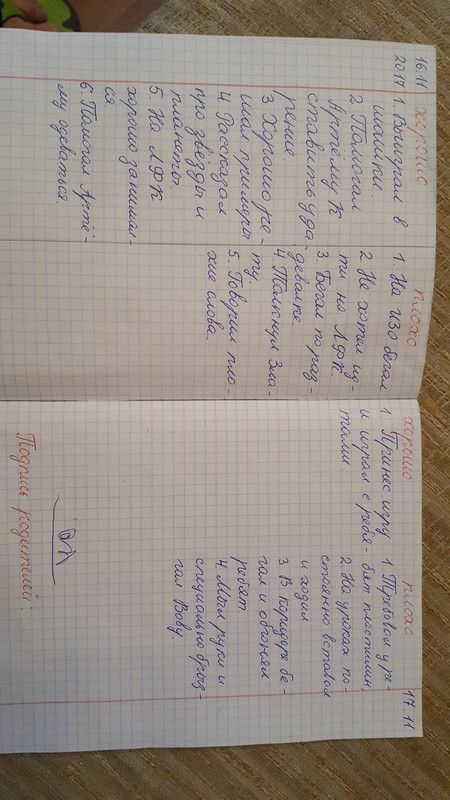 16.11
2017
хорошо
1. Выиграл в
шашки.
2. Помогал
Артёму к
ставить уда
рение
3. Хорошо ре-
шал примеры
4. Рассказал
про звёзды и
планеты.
5. На ЛФК
хорошо занимал-
ся
6. Помогал Артё-
му одеваться.
плохо
1. На ИЗО бегал
2. Не хотел ид-
ти на ЛФК.
3. Бегал по раз-
девалке.
4. Толкнул Зла-
ту
5. Говорил пло-
хие слова.
хорошо
1. Принёс игру
и играл с ребя-
тами
плохо
17.11
1. Требовал у ре-
бят пластилин,
2. На уроках по-
стоянно вставал
и ходил
3. В коридоре бе-
гал и обгонял
ребят
4. Мыл руки и
специально брыз-
гал Вову.
Подпись родителей: